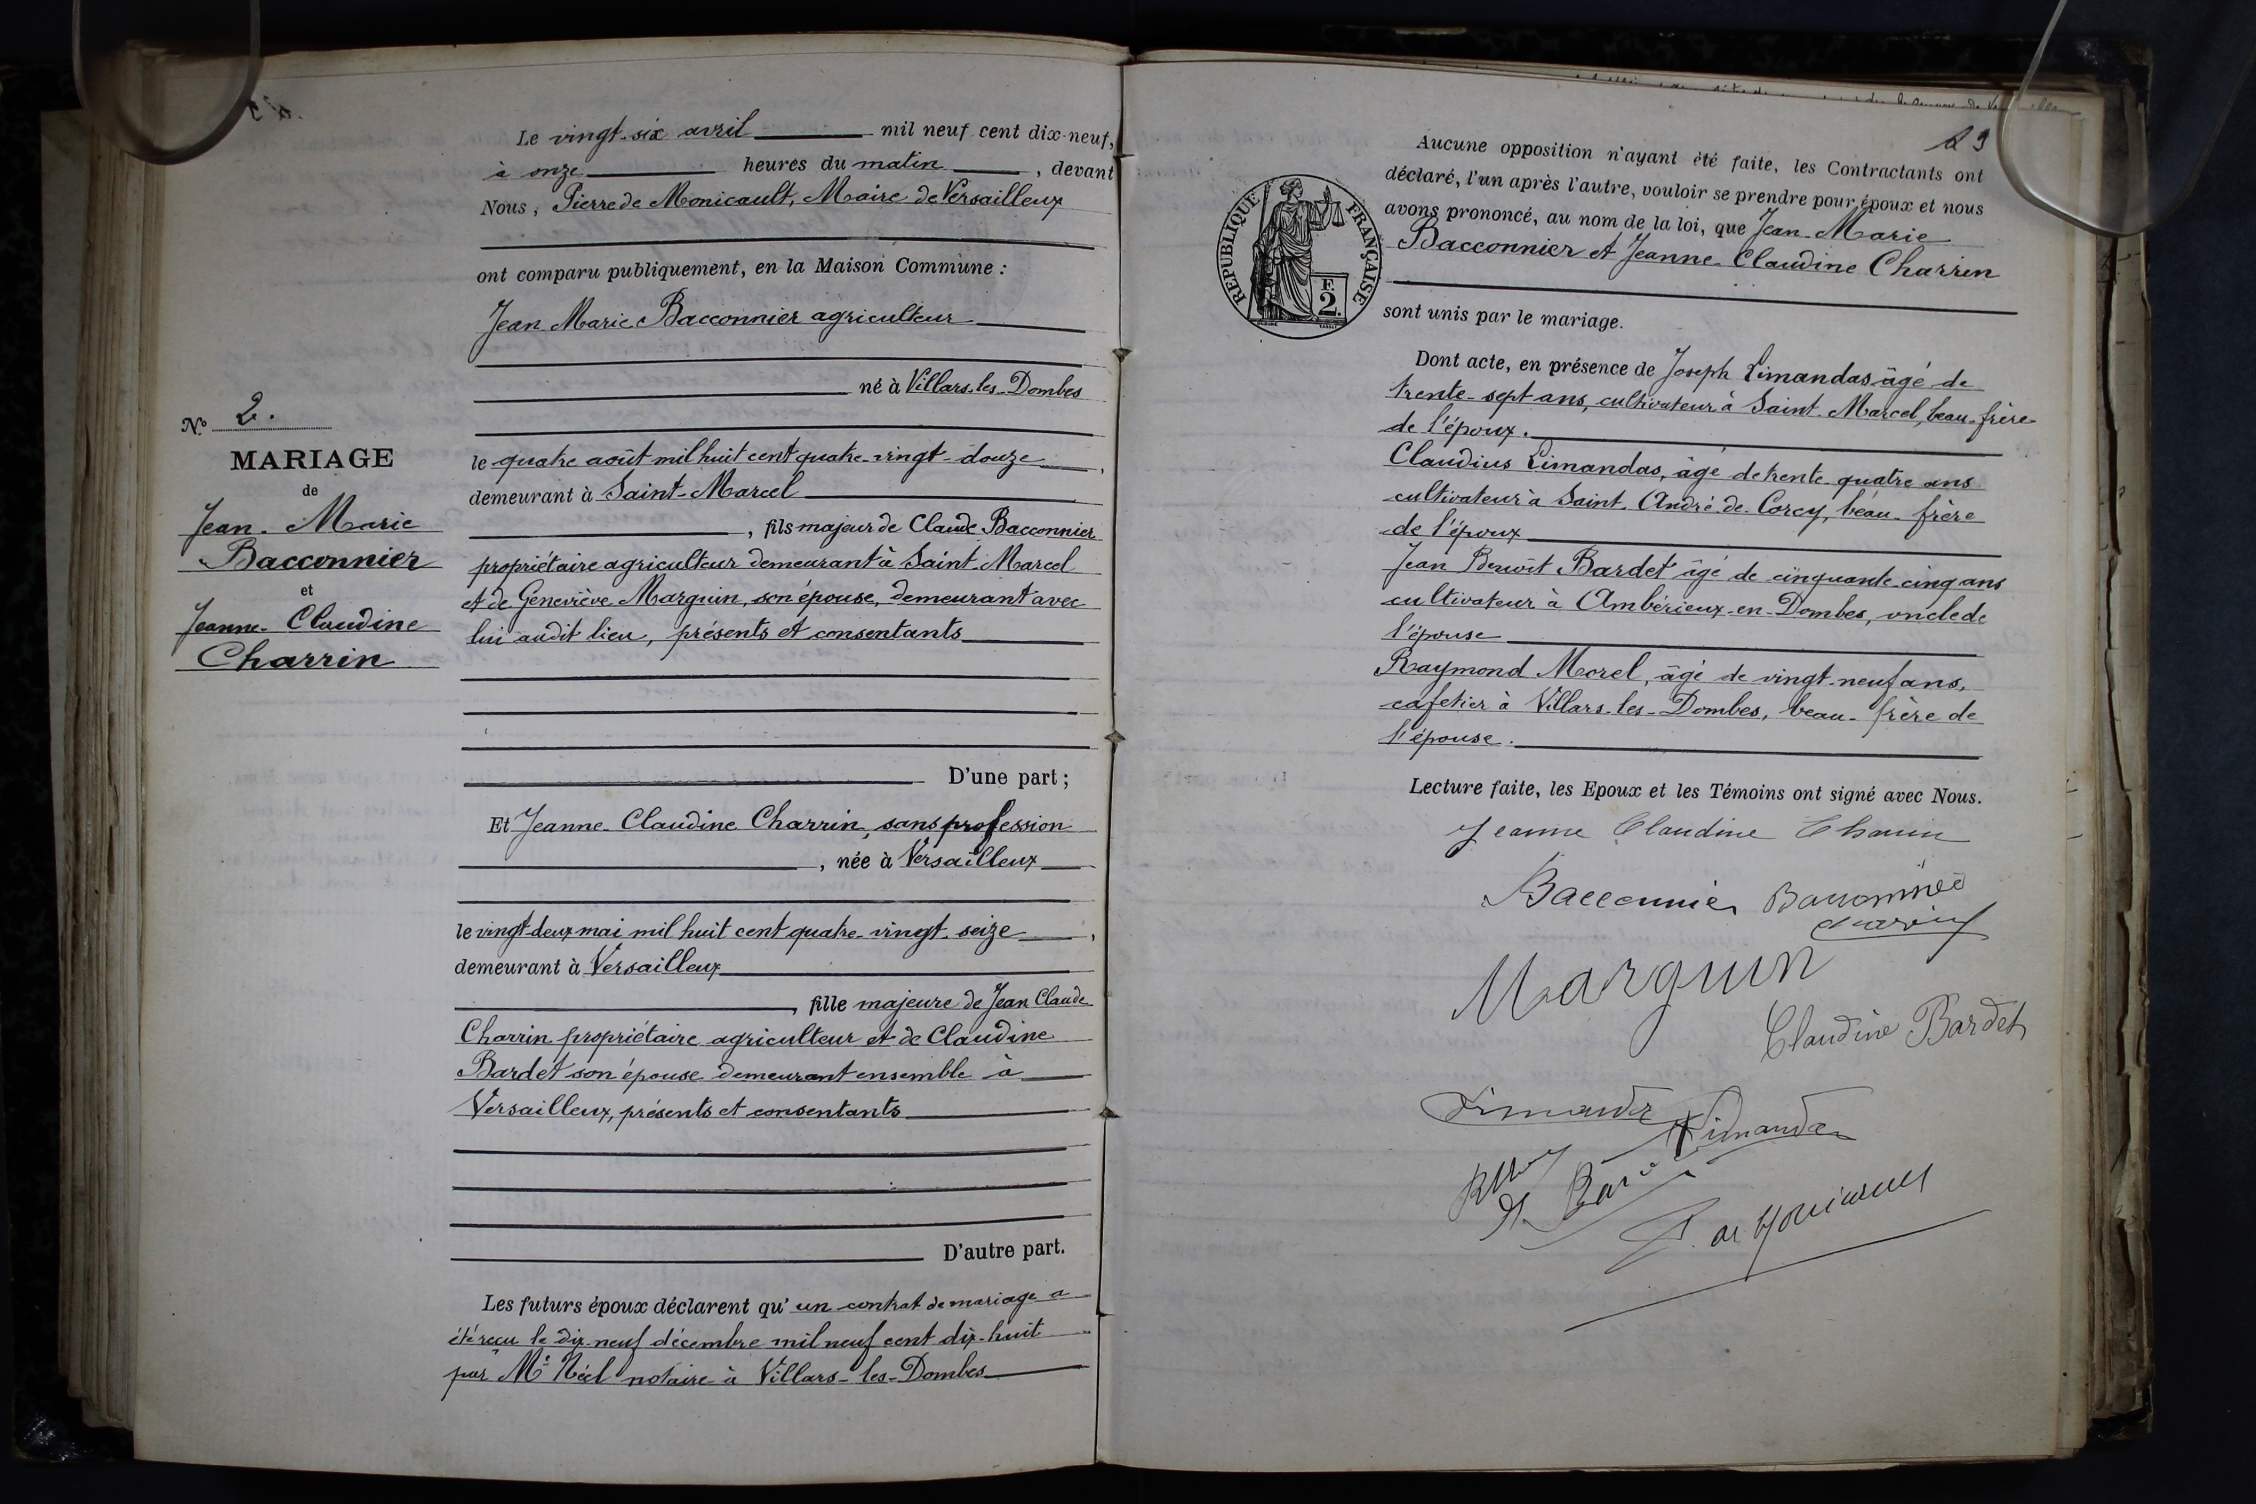 N° 2.
MARIAGE
de
Jean-Marie
Bacconnier
et
Jeanne-Claudine
Charrin
Le vingt-six avril mil neuf cent dix-neuf,
à onze heures du matin, devant
Nous, Pierre de Monicault, Maire de Versailleux
ont comparu publiquement, en la Maison Commune :
Jean Marie Bacconnier agriculteur
né à Villars-les-Dombes
le quatre août mil huit cent quatre-vingt-douze,
demeurant à Saint-Marcel
, fils majeur de Claude Bacconnier
propriétaire agriculteur demeurant à Saint-Marcel
et de Geneviève Marguin, son épouse, demeurant avec
lui audit lieu, présents et consentants
D'une part ;
Et Jeanne-Claudine Charrin, sans profession
, née à Versailleux
le vingt-deux mai mil huit cent quatre-vingt-seize,
demeurant à Versailleux
, fille majeure de Jean Claude
Charrin propriétaire agriculteur et de Claudine
Bardet son épouse demeurant ensemble à
Versailleux, présents et consentants
D'autre part.
Les futurs époux déclarent qu'un contrat de mariage a
été reçu le dix-neuf décembre mil neuf cent dix-huit
par Me Néel notaire à Villars-les-Dombes
RÉPUBLIQUE FRANÇAISE
F.
2.
Aucune opposition n'ayant été faite, les Contractants ont
déclaré, l'un après l'autre, vouloir se prendre pour époux et nous
avons prononcé, au nom de la loi, que Jean-Marie
Bacconnier et Jeanne-Claudine Charrin
sont unis par le mariage.
Dont acte, en présence de Joseph Limandas âgé de
trente-sept ans, cultivateur à Saint-Marcel, beau-frère
de l'époux.
Claudius Limandas, âgé de trente-quatre ans
cultivateur à Saint-André-de-Corcy, beau-frère
de l'époux
Jean Benoît Bardet âgé de cinquante-cinq ans
cultivateur à Ambérieux-en-Dombes, oncle de
l'épouse
Raymond Morel, âgé de vingt-neuf ans,
cafetier à Villars-les-Dombes, beau-frère de
l'épouse.
Lecture faite, les Epoux et les Témoins ont signé avec Nous.
Jeanne Claudine Charrin
Bacconnier Bacconnier
Charrin
Marguin
Claudine Bardet
Limandas
Limandas
P. de Monicault